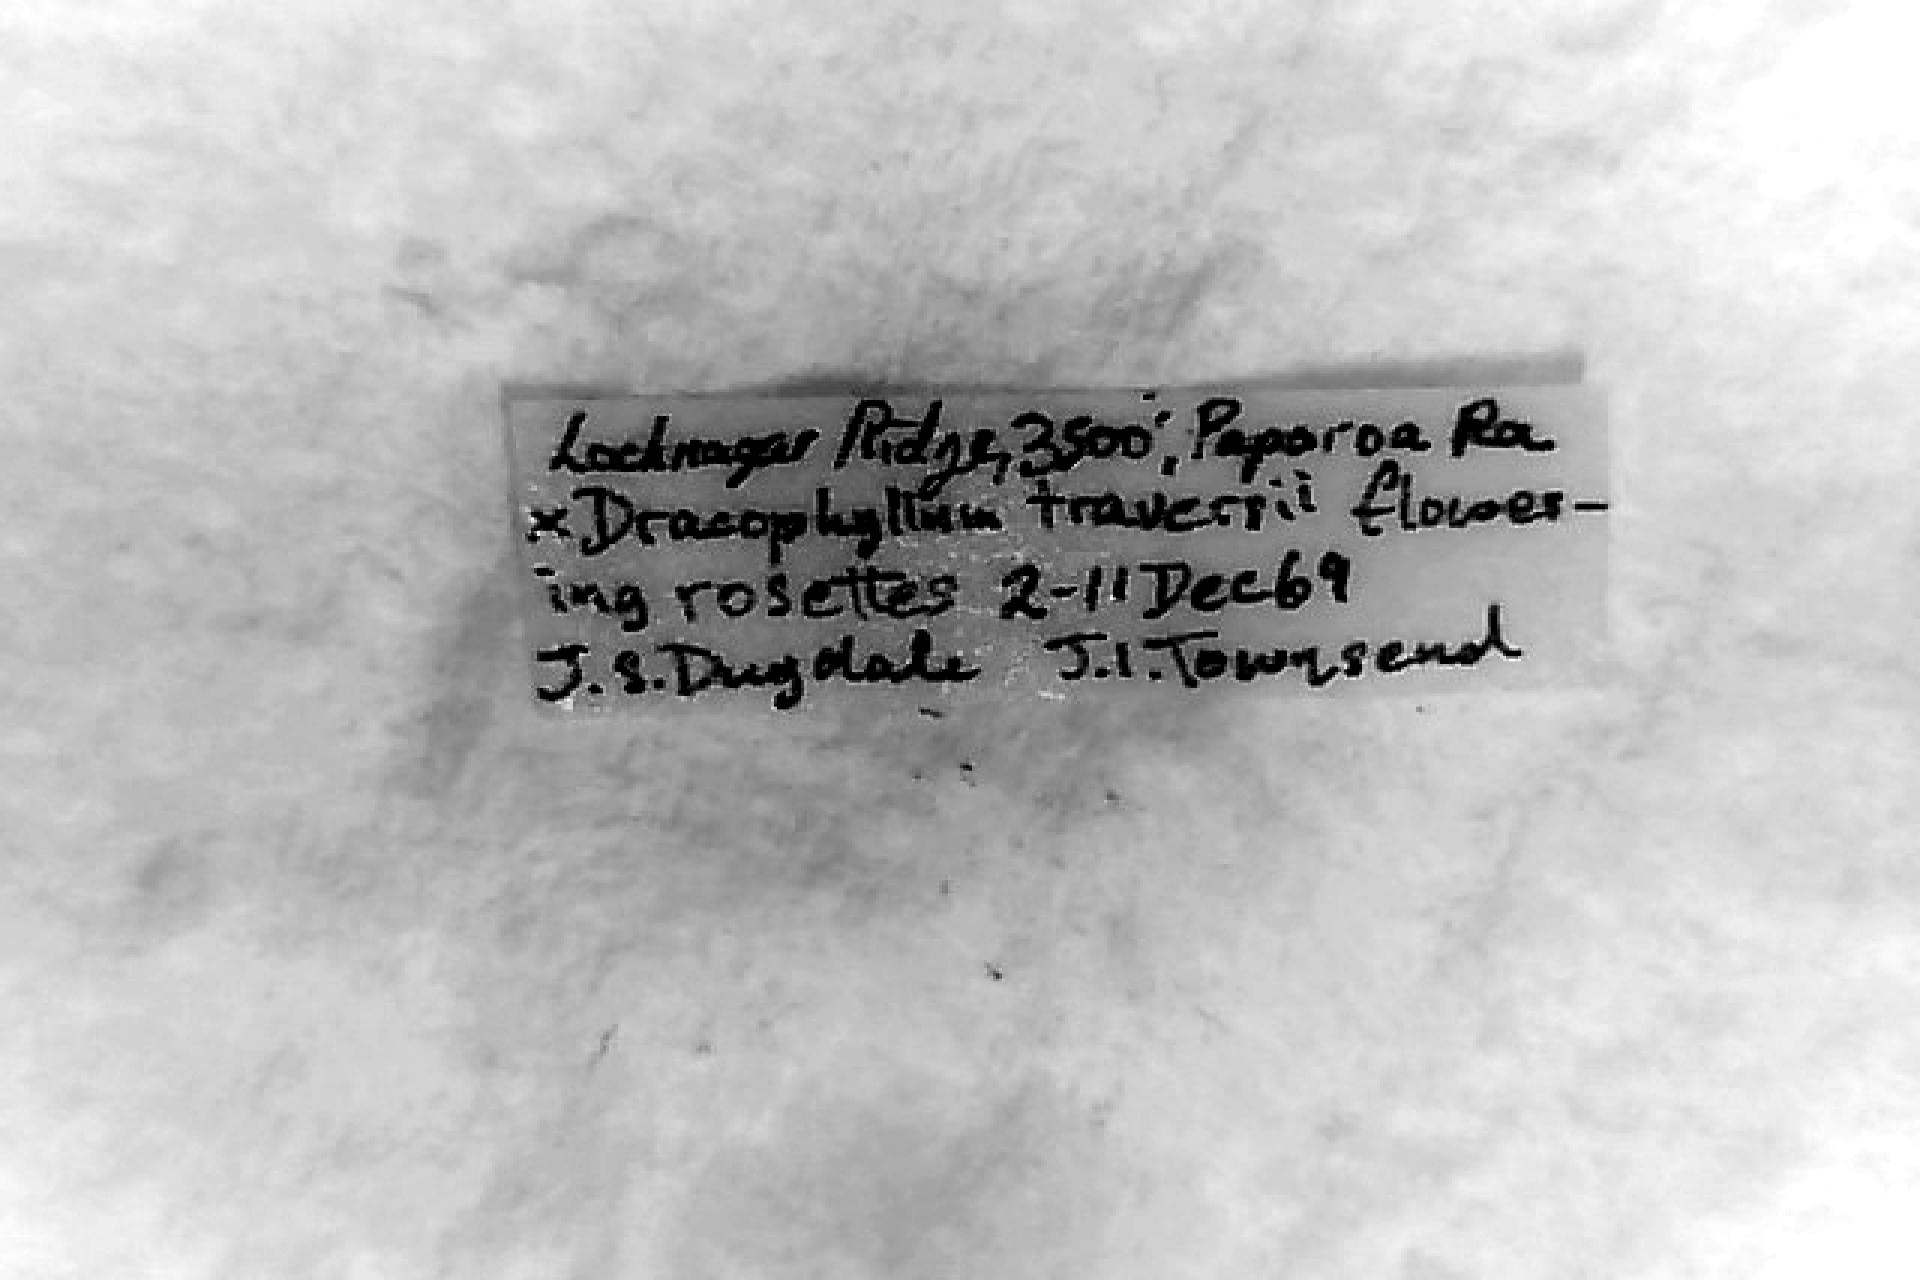 Lochnagar Ridge, 3500', Paparoa Ra
x Dracophyllum traversii flower-
ing rosettes 2-11 Dec 69
J.S. Dugdale J.I. Townsend